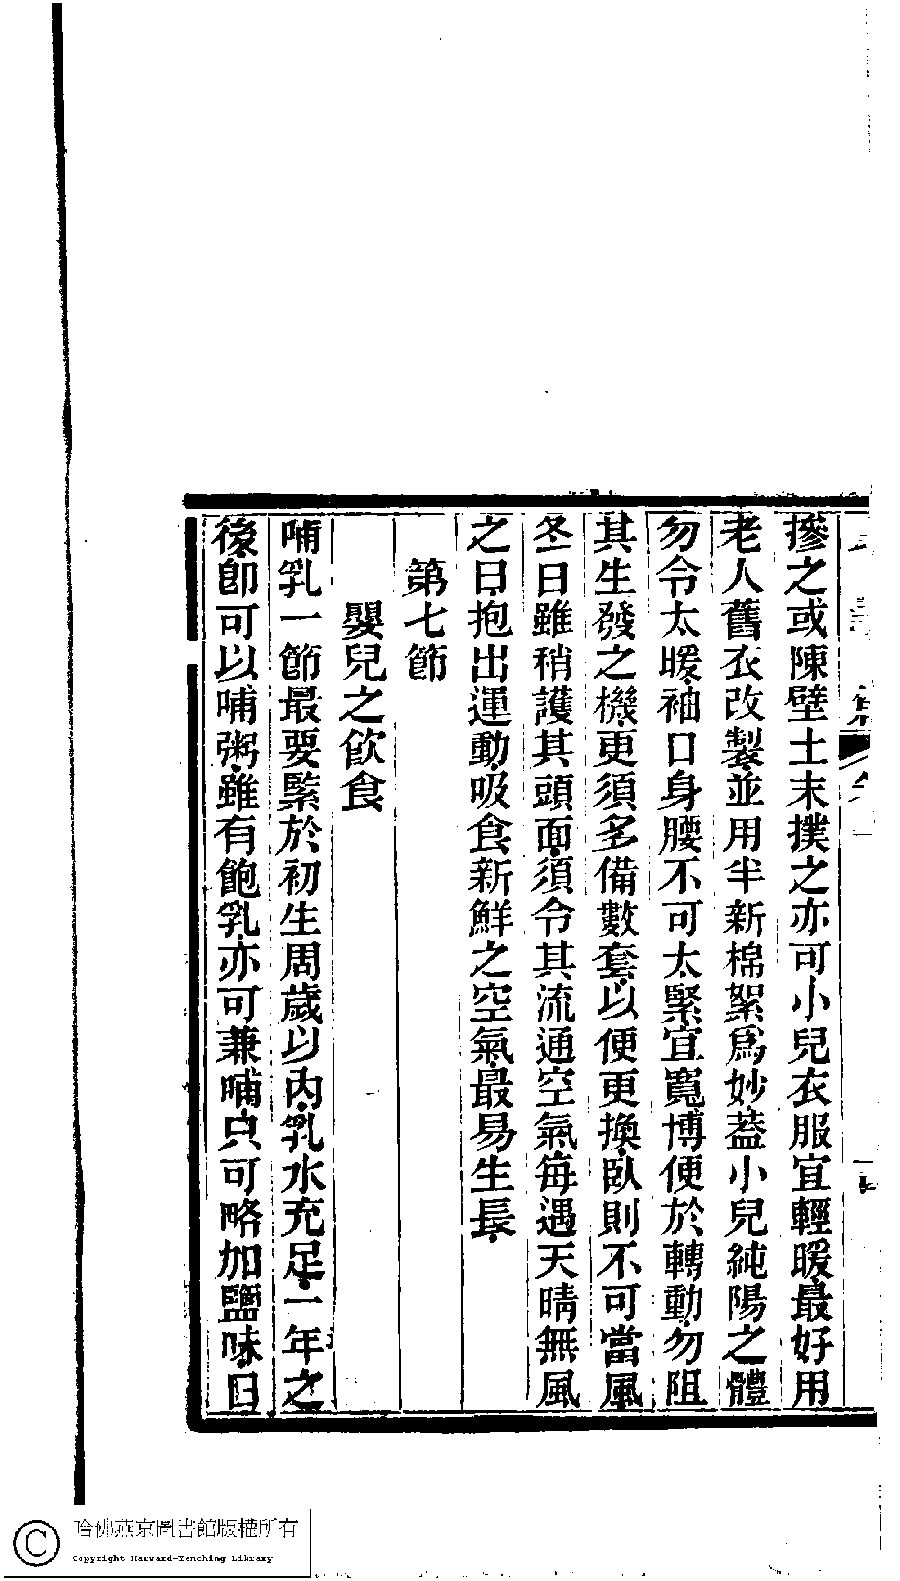 摻之或陳壁土末撲之亦可小兒衣服宜輕暖最好用
老人舊衣改製並用半新棉絮爲妙葢小兒純陽之體
勿令太暖袖口身腰不可太緊宜寬博便於轉動勿阻
其生發之機更須多備數套以便更換臥則不可當風
冬日雖稍護其頭面須令其流通空氣每遇天晴無風
之日抱出運動吸食新鮮之空氣最易生長
第七節
嬰兒之飲食
哺乳一節最要緊於初生周歲以內乳水充足一年之
後卽可以哺粥雖有飽乳亦可兼哺只可略加鹽味日
哈佛燕京圖書館版權所有
Copyright Harvard-Yenching Library